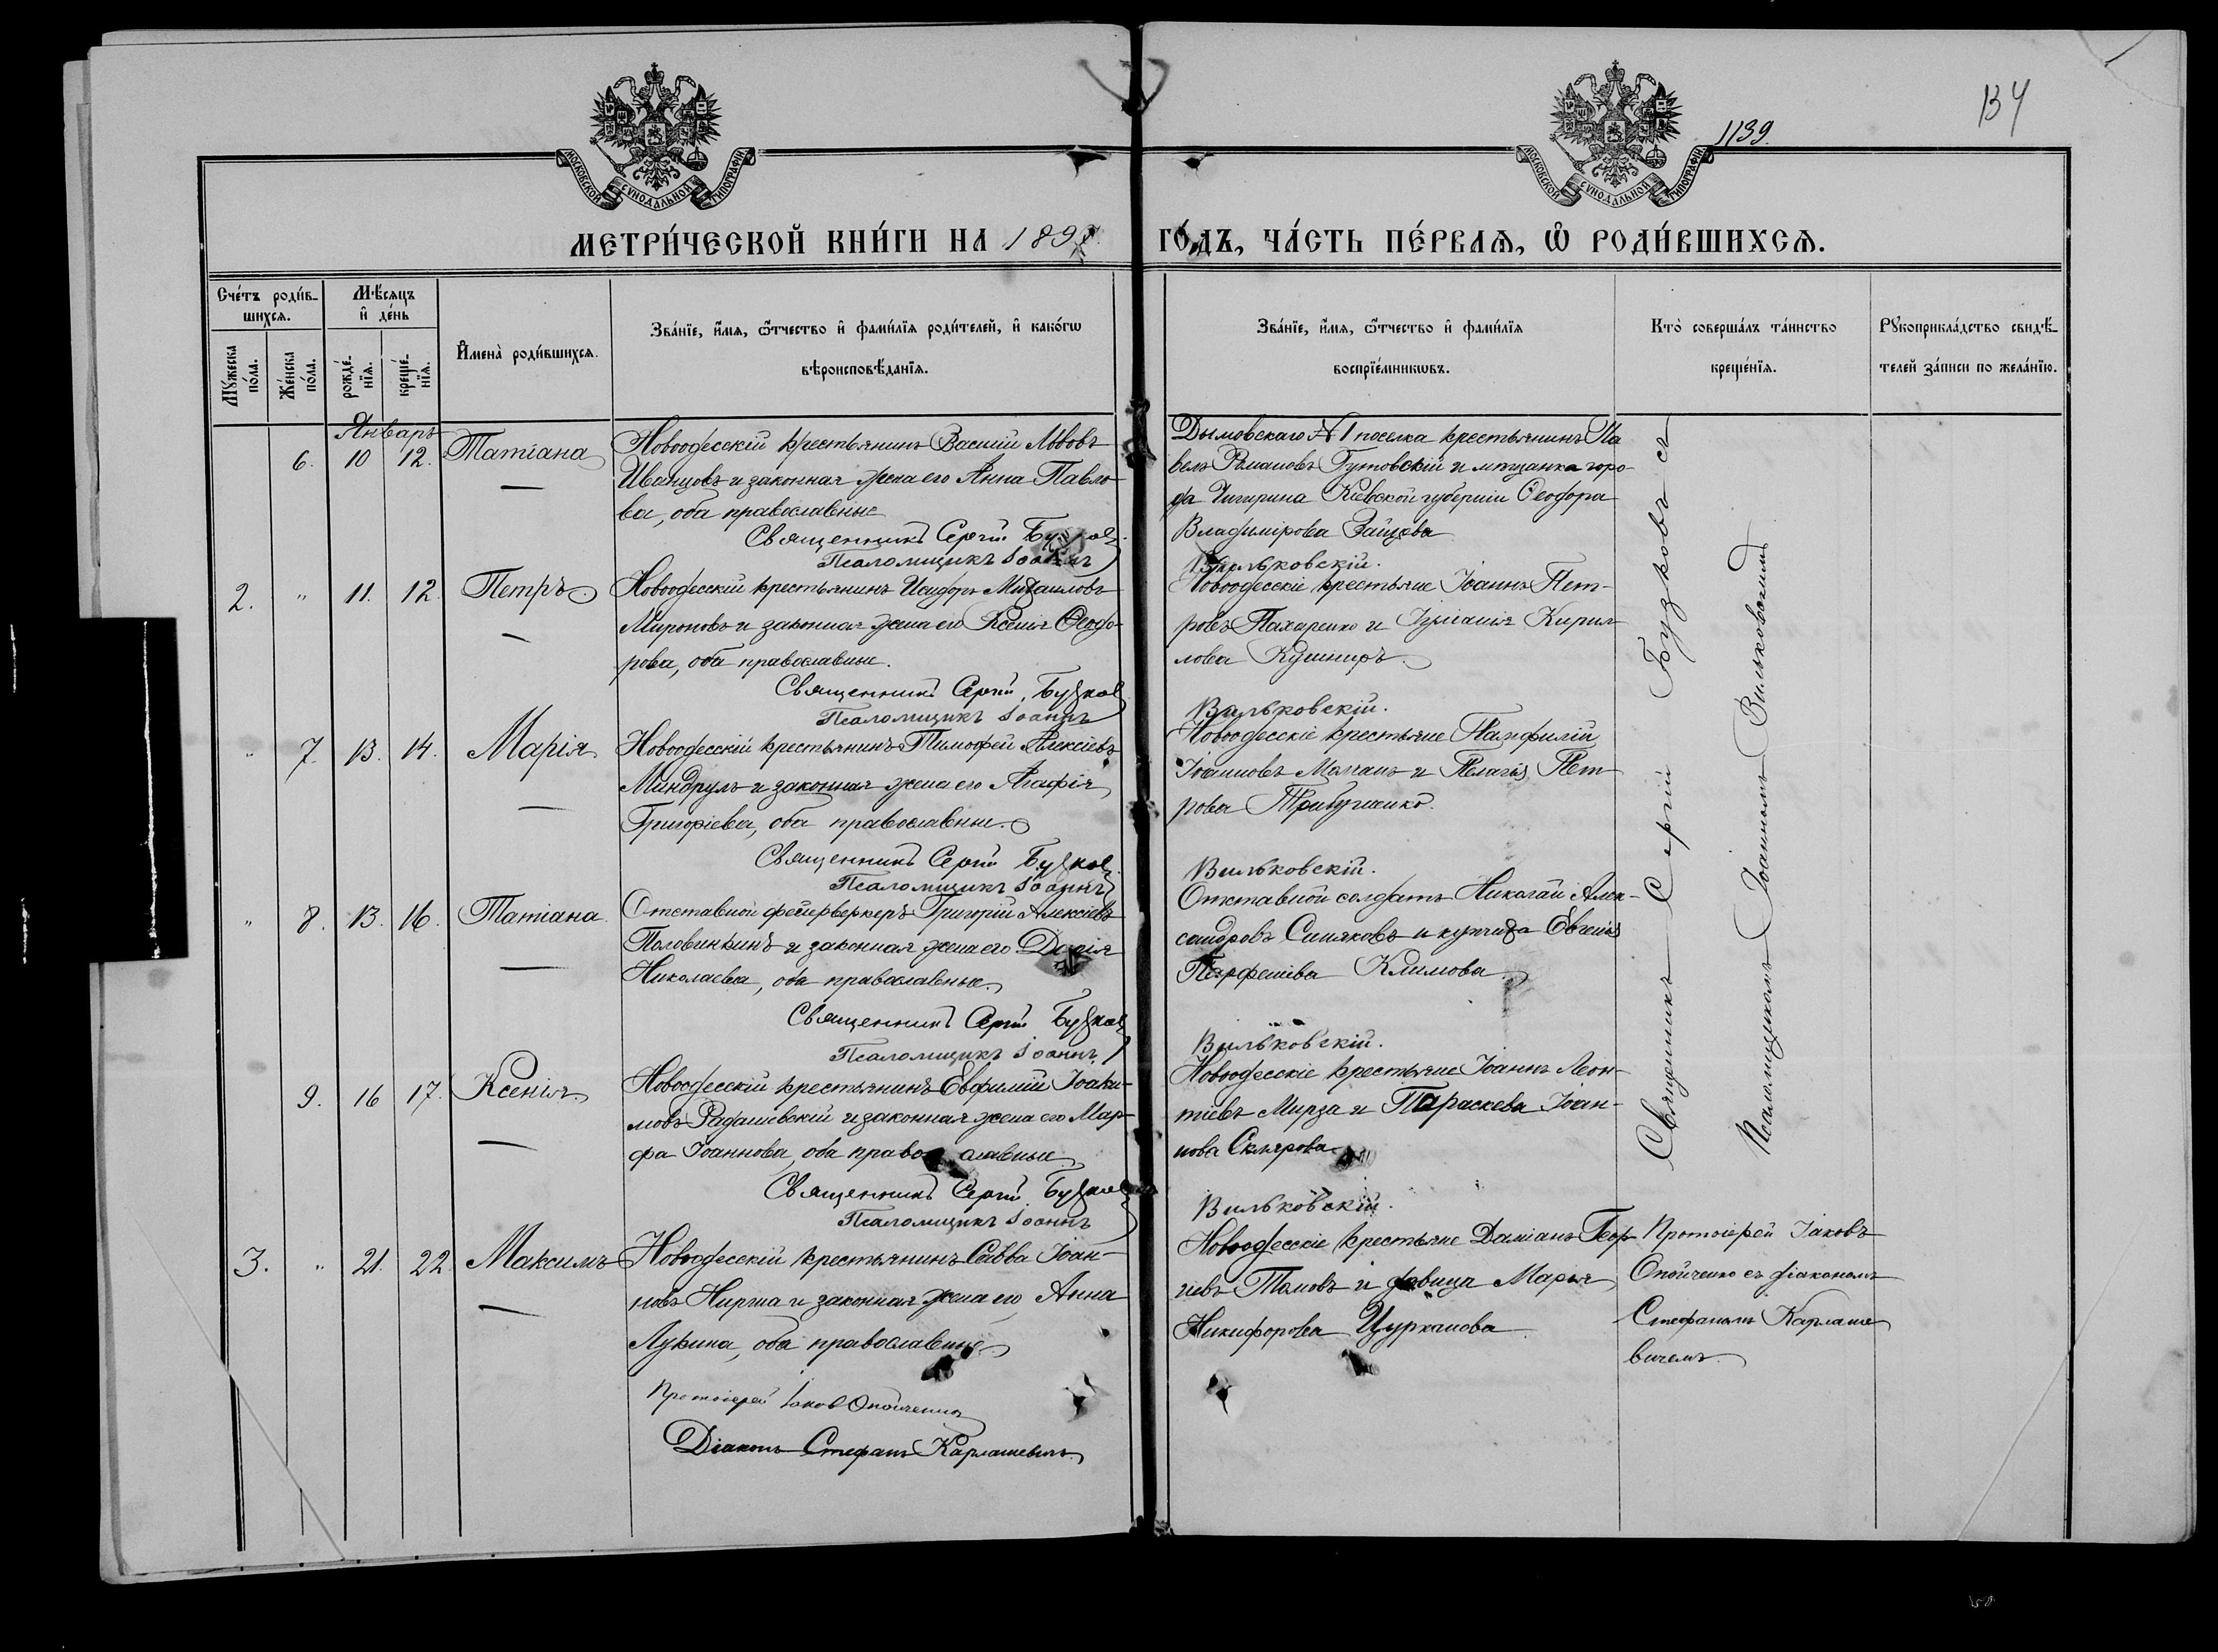 134
1139.
МОСКОВСКОЙ СУНОДАЛЬНОЙ ТИПОГРАФІИ
МОСКОВСКОЙ СУНОДАЛЬНОЙ ТИПОГРАФІИ
МЕТРИ́ЧЕСКОЙ КНИ́ГИ НА 189
ГО́ДЪ, ЧА́СТЬ ПЕ́РВАѦ, Ѡ҆ РОДИ́ВШИХСѦ.
Сче́тъ роди́в-
шихсѧ.
Мꙋ́жеска по́ла.
Же́нска по́ла.
Мѣ́сѧцъ
и҆ де́нь
рожде́-нїѧ.
креще́-нїѧ.
И҆мена̀ роди́вшихсѧ.
Зва́нїе, и҆́мѧ, ѻ҆́тчество и҆ фами́лїѧ роди́телей, и҆ како́гѡ
вѣроисповѣ́данїѧ.
Зва́нїе, и҆́мѧ, ѻ҆́тчество и҆ фами́лїѧ
воспрїе́мникѡвъ.
Кто̀ соверша́лъ та́инство
креще́нїѧ.
Рꙋкоприкла́дство свидѣ́-
телей за́писи по жела́нїю.
Январь
6. 10 12. Татіана
Новоодесскій крестьянинъ Василій Львовъ
Иванцовъ и законная жена его Анна Павло-
ва, оба православные
Священникъ Сергій Бузков
Псаломщикъ Іоаннъ
Дымовскаго № 1 поселка крестьянинъ Па
велъ Романовъ Гутовскій и мѣщанка горо-
да Чигирина Кіевской губерніи Ѳеодора
Владимірова Зайцева
Вильковскій.
2. " 11. 12. Петръ
Новоодесскій крестьянинъ Исидоръ Михаиловъ
Мироновъ и законная жена его Ксенія Ѳеодо-
рова, оба православные.
Священникъ Сергій Бузков
Псаломщикъ Іоаннъ
Новоодесскіе крестьяне Іоаннъ Пет-
ровъ Пахаренко и Іуліанія Кирил-
лова Кушниръ.
Вильковскій.
" 7. 13. 14. Марія
Новоодесскій крестьянинъ Тимофей Алексіевъ
Миндрулъ и законная жена его Агафія
Григоріева, оба православные.
Священникъ Сергій Бузков
Псаломщикъ Іоаннъ
Новоодесскіе крестьяне Памфилій
Іоанновъ Молчанъ и Пелагія Пет-
рова Трибушенко.
Вильковскій.
" 8. 13. 16. Татіана
Отставной фейерверкеръ Григорій Алексіевъ
Половинкинъ и законная жена его Дарія
Николаева, оба православные.
Священникъ Сергій Бузков
Псаломщикъ Іоаннъ
Отставной солдатъ Николай Алек-
сандровъ Синяковъ и купчиха Евгенія
Парфеніева Климова
Вильковскій.
9. 16 17. Ксенія
Новоодесскій крестьянинъ Евфимій Іоаки-
мовъ Радашевскій и законная жена его Мар-
фа Іоаннова, оба православные
Священникъ Сергій Бузков
Псаломщикъ Іоаннъ
Новоодесскіе крестьяне Іоаннъ Леон-
тіевъ Мирза и Параскева Іоан-
нова Склярова
Вильковскій.
Священникъ Сергій Бузковъ съ
Псаломщикомъ Іоанномъ Вильковскимъ
3. " 21. 22. Максимъ
Новоодесскій крестьянинъ Савва Іоан-
новъ Нирша и законная жена его Анна
Лукина, оба православные
Протоіерей Іаков Опойченко
Діаконъ Стефанъ Карлашевичъ
Новоодесскіе крестьяне Даміанъ Геор-
гіевъ Томовъ и дѣвица Марія
Никифорова Цурканова
Протоіерей Іаковъ
Опойченко съ діакономъ
Стефаномъ Карлаше
вичемъ.